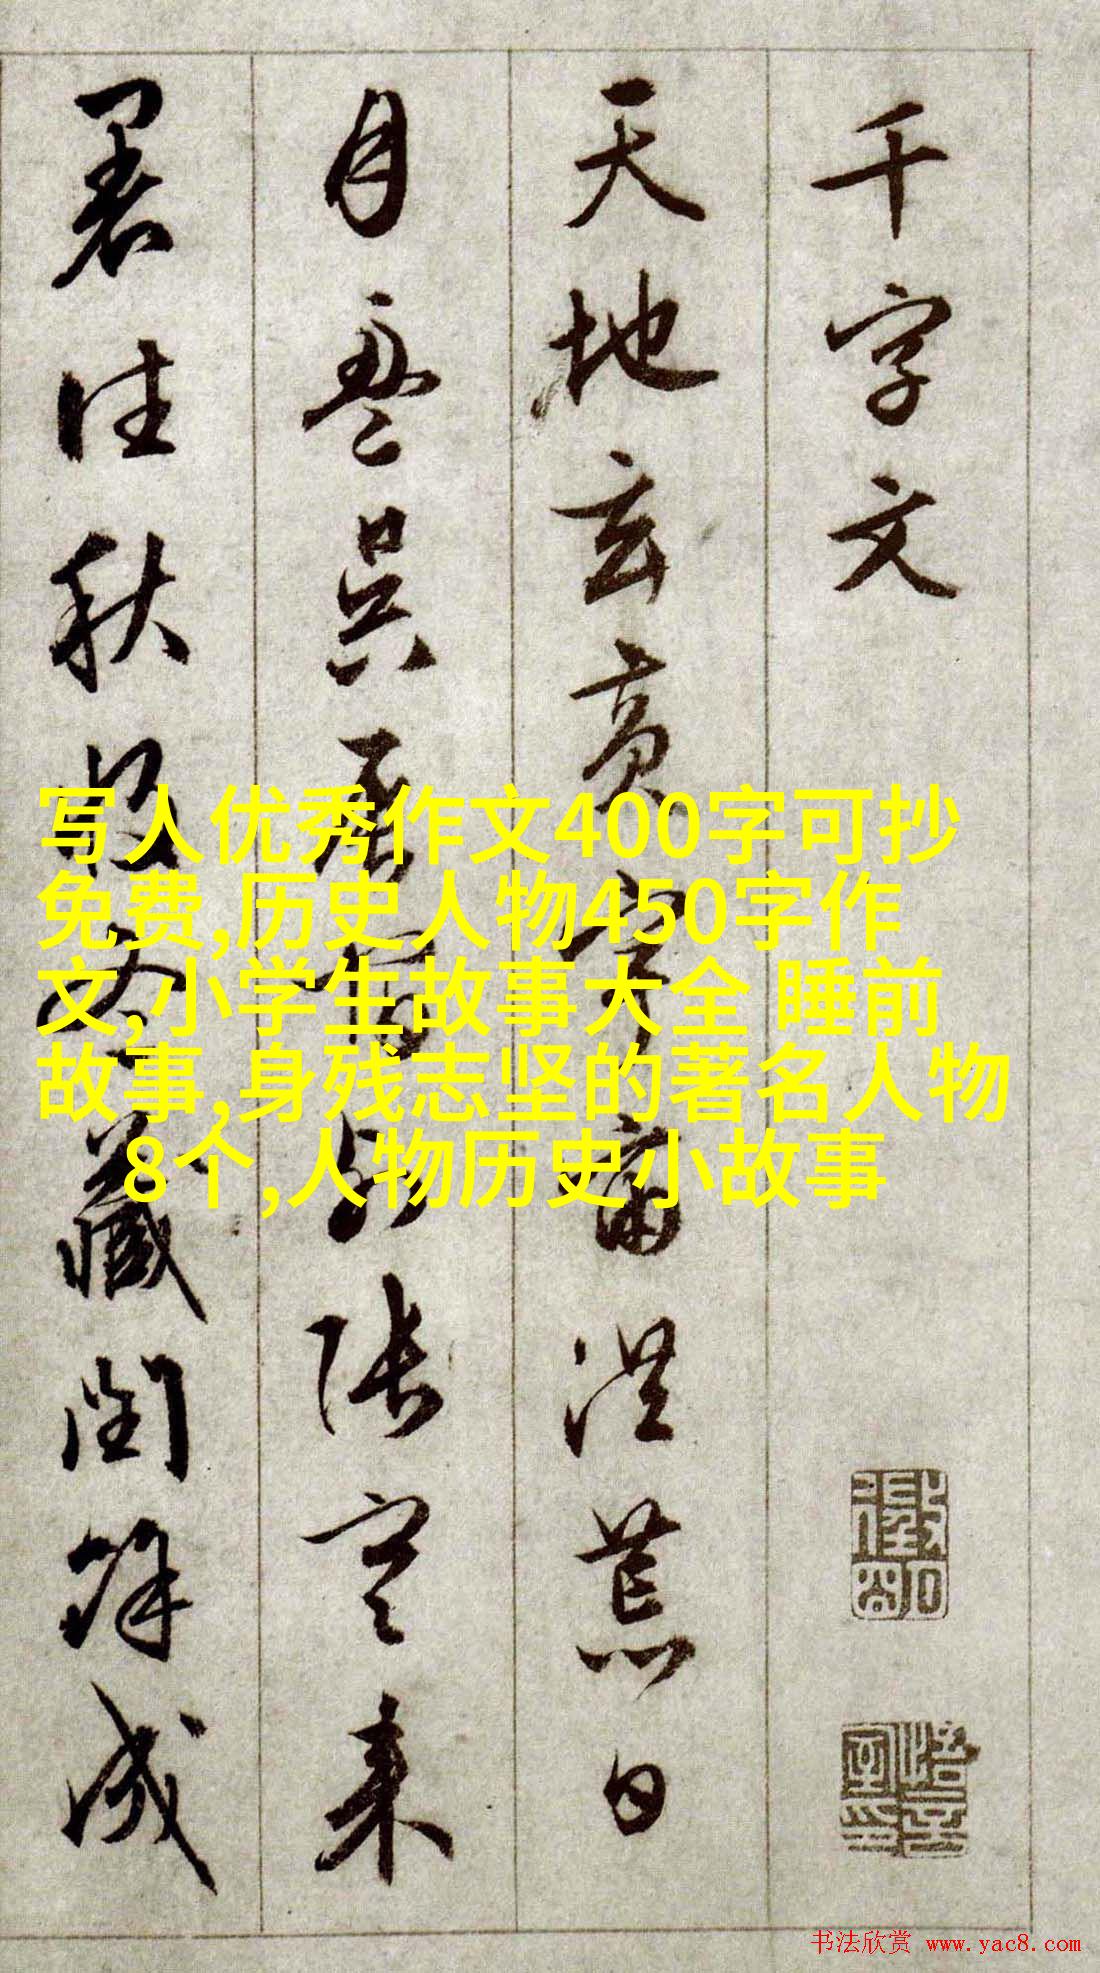 千字文
天地玄黃宇宙洪荒日
月盈昃辰宿列張寒来
暑往秋收冬藏閏餘成
写人优秀作文400字可抄
免费,历史人物450字作
文,小学生故事大全 睡前
故事,身残志坚的著名人物
8个,人物历史小故事
书法欣赏 www.yac8.com